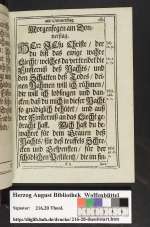 am Donnerstag. 161
Morgensegen am Don-
nerstag.
HErr JEsu Christe / der
du bist das ewige wahre
Liecht / welches da vertreibet die
Finsternis des Nachts / und
den Schatten des Todes / dei-
nen Nahmen will ich rühmen /
dir will ich lobsingen und dan-
cken / daß du mich in dieser Nacht
so gnädiglich behütet / und aus
der Finsternis an das Liecht ge-
bracht hast. Mich hast du be-
wahret für dem Grauen des
Nachts / für des teuffels Schre-
cken und Gespensten / für der
schädlichen Pestilentz / die im fin-
Herzog August Bibliothek Wolfenbüttel
Signatur: 216.20 Theol.
http://diglib.hab.de/drucke/216-20-theol/start.htm